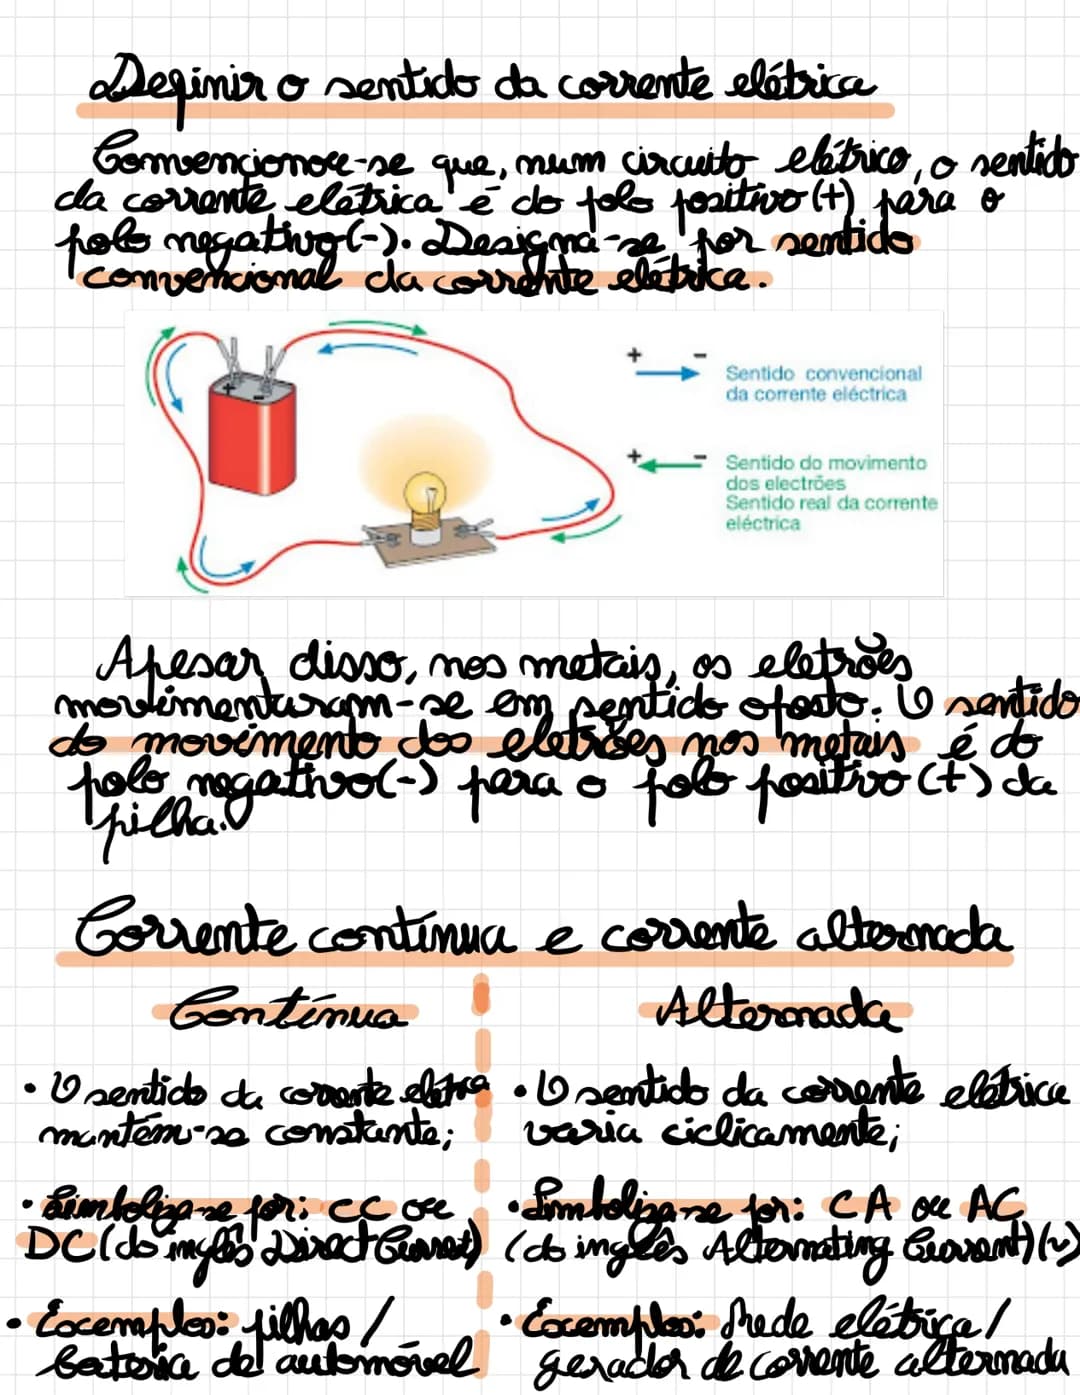 Definir o sentido da corrente elétrica
Convencionou-se que, num circuito elétrico, o sentido
da corrente elétrica é do polo positivo (+) para o
polo negativo (-). Designa-se por sentido
convencional da corrente elétrica.
+ -
Sentido convencional
da corrente eléctrica
+ -
Sentido do movimento
dos electrões
Sentido real da corrente
eléctrica
+ -
Apesar disso, nos metais, os eletrões
movimenturam-se em sentido oposto. O sentido
do movimento dos eletrões nos metais é do
polo negativo (-) para o polo positivo (+) da
pilha.
Corrente contínua e corrente alternada
Contínua
Alternada
• O sentido da corrente elétrica
mantém-se constante;
• O sentido da corrente elétrica
varia ciclicamente;
• Simboliza-se por: CC ou
DC (do inglês Direct Current)
• Simboliza-se por: CA ou AC
(do inglês Alternating Current) (~)
• Exemplos: pilhas /
bateria de automóvel
• Exemplos: Rede elétrica /
gerador de corrente alternada